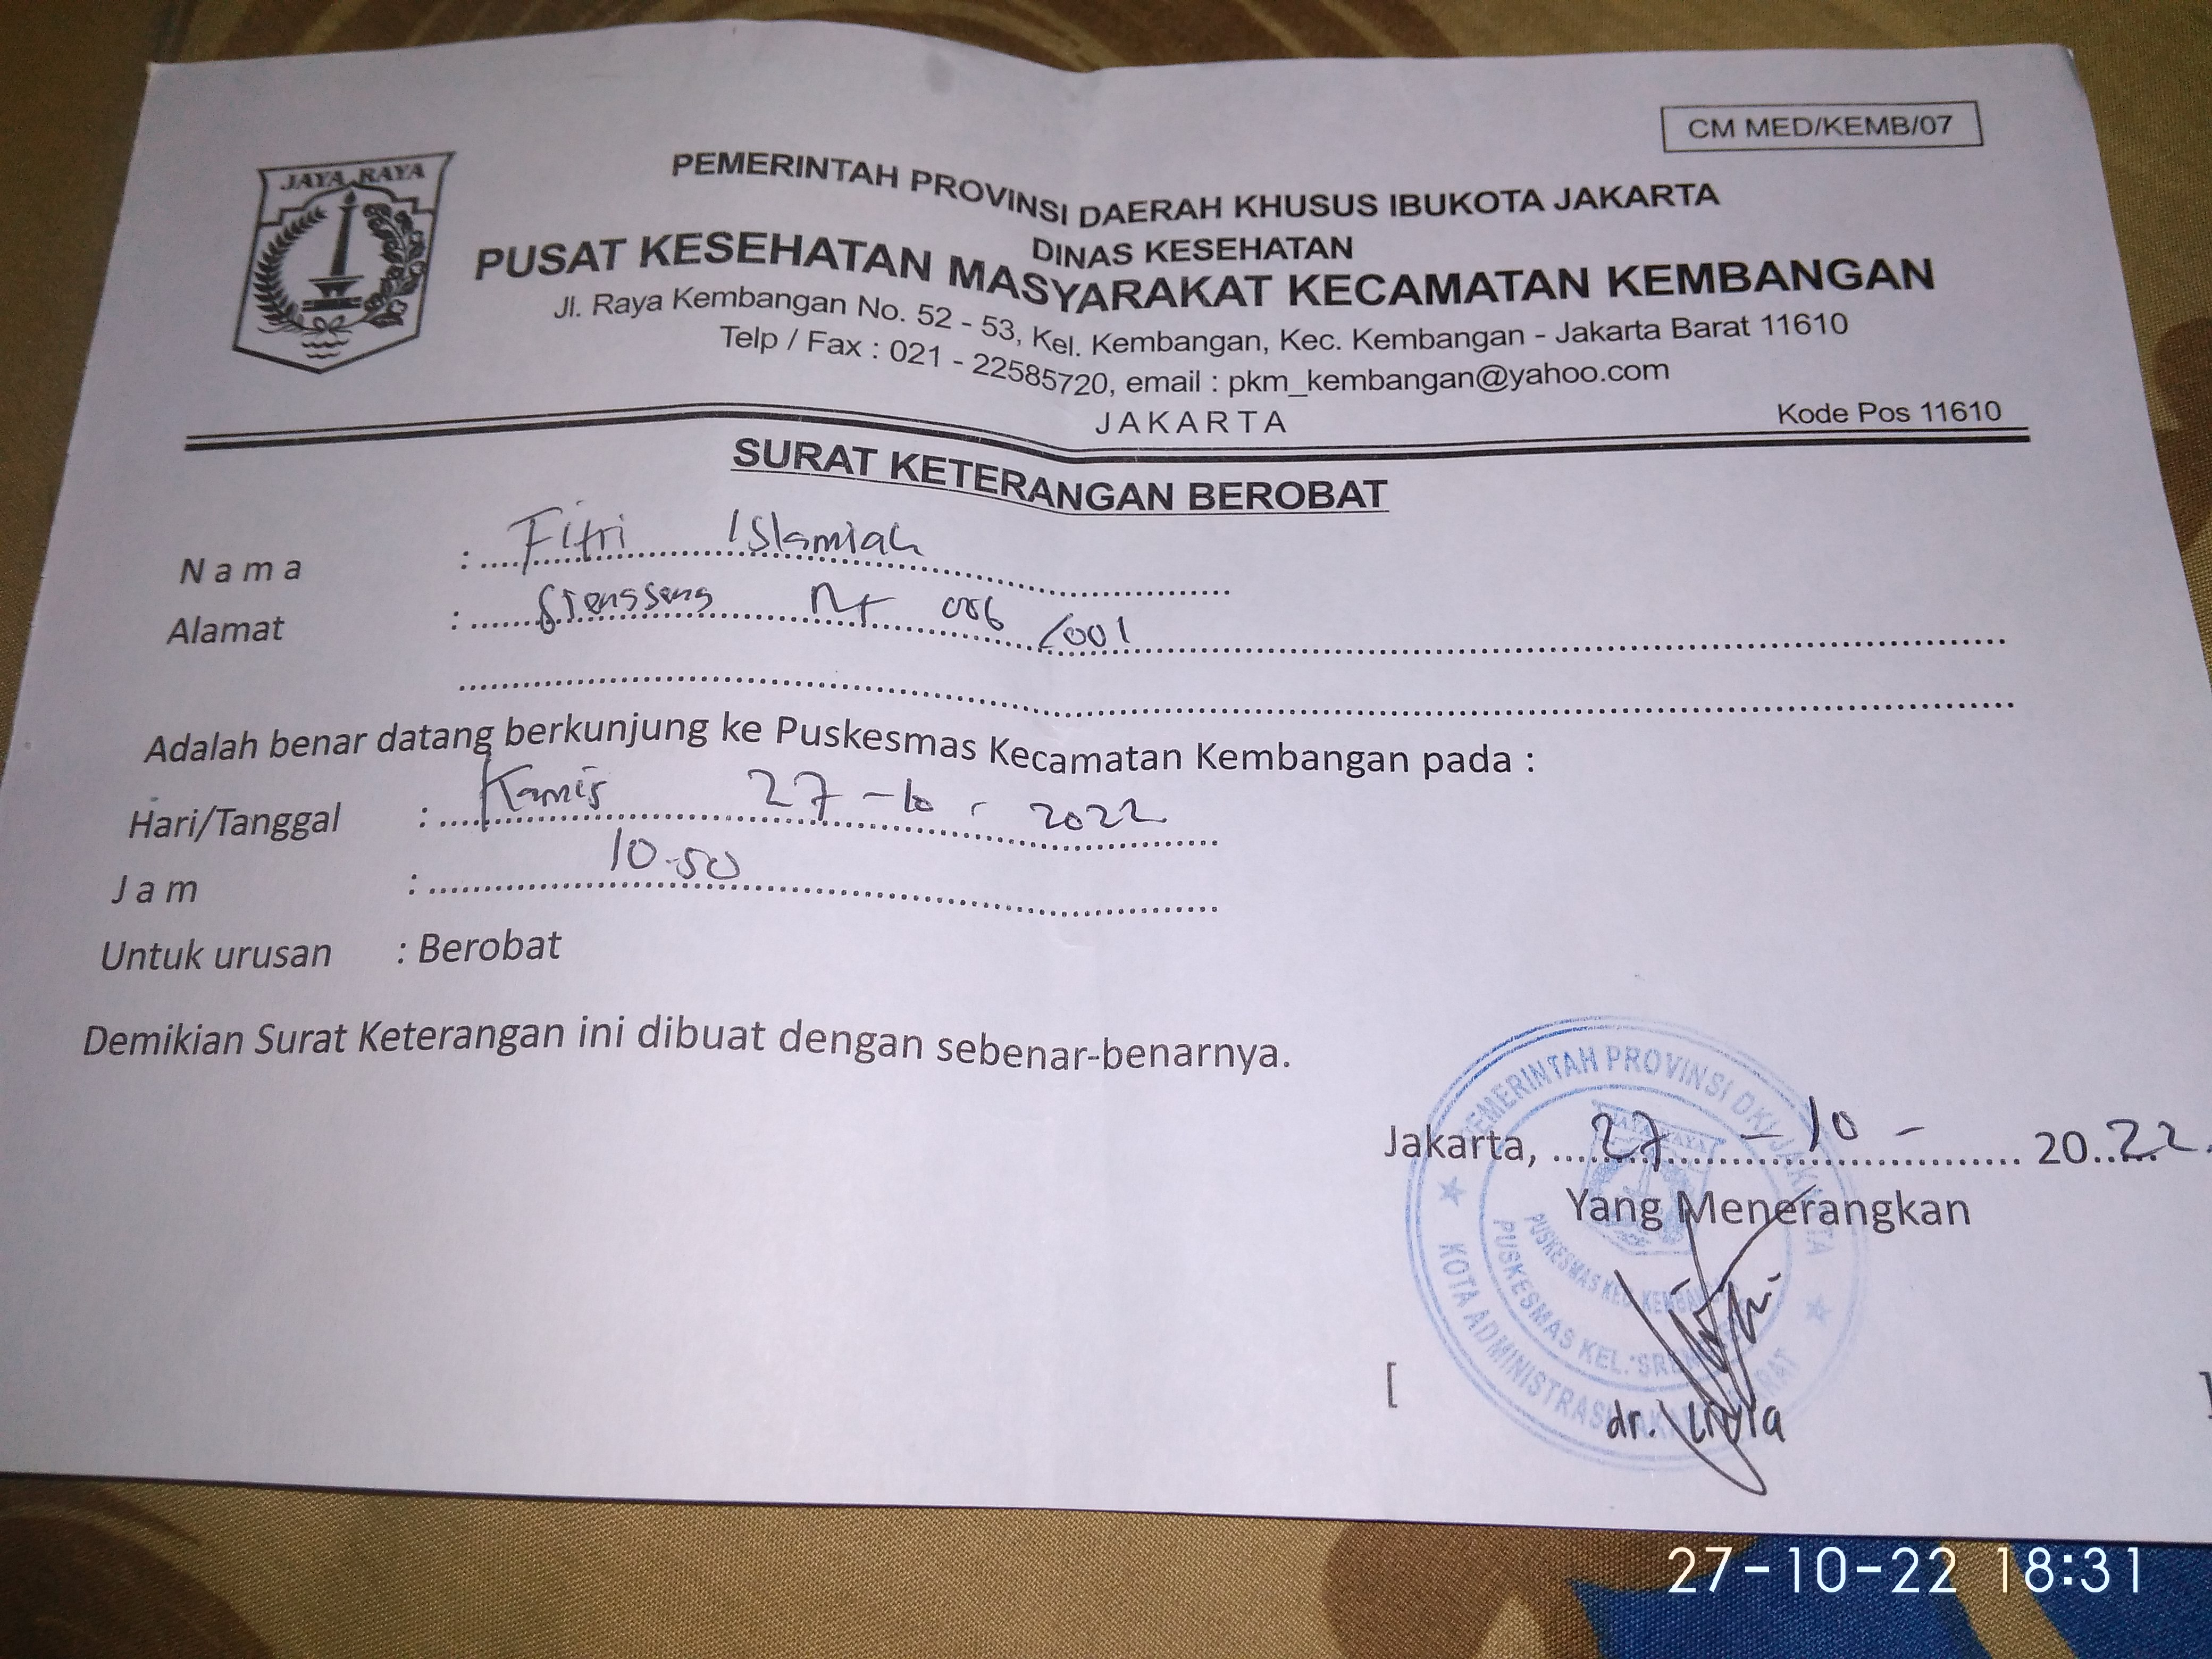 CM MED/KEMB/07
JAYA RAYA
PEMERINTAH PROVINSI DAERAH KHUSUS IBUKOTA JAKARTA
DINAS KESEHATAN
PUSAT KESEHATAN MASYARAKAT KECAMATAN KEMBANGAN
Jl. Raya Kembangan No. 52 - 53, Kel. Kembangan, Kec. Kembangan - Jakarta Barat 11610
Telp / Fax : 021 - 22585720, email : pkm_kembangan@yahoo.com
JAKARTA
Kode Pos 11610
SURAT KETERANGAN BEROBAT
Nama : Fitri Islamiah
Alamat : Rt 006 /001
Adalah benar datang berkunjung ke Puskesmas Kecamatan Kembangan pada :
Hari/Tanggal : Kamis 27 - 10 - 2022
Jam : 10.50
Untuk urusan : Berobat
Demikian Surat Keterangan ini dibuat dengan sebenar-benarnya.
Jakarta, 27 - 10 - 2022.
Yang Menerangkan
PEMERINTAH PROVINSI DKI JAKARTA
PUSKESMAS KEC. KEMBANGAN
PUSKESMAS KEL.
KOTA ADMINISTRASI JAKARTA BARAT
[ dr. ]
27-10-22 18:31